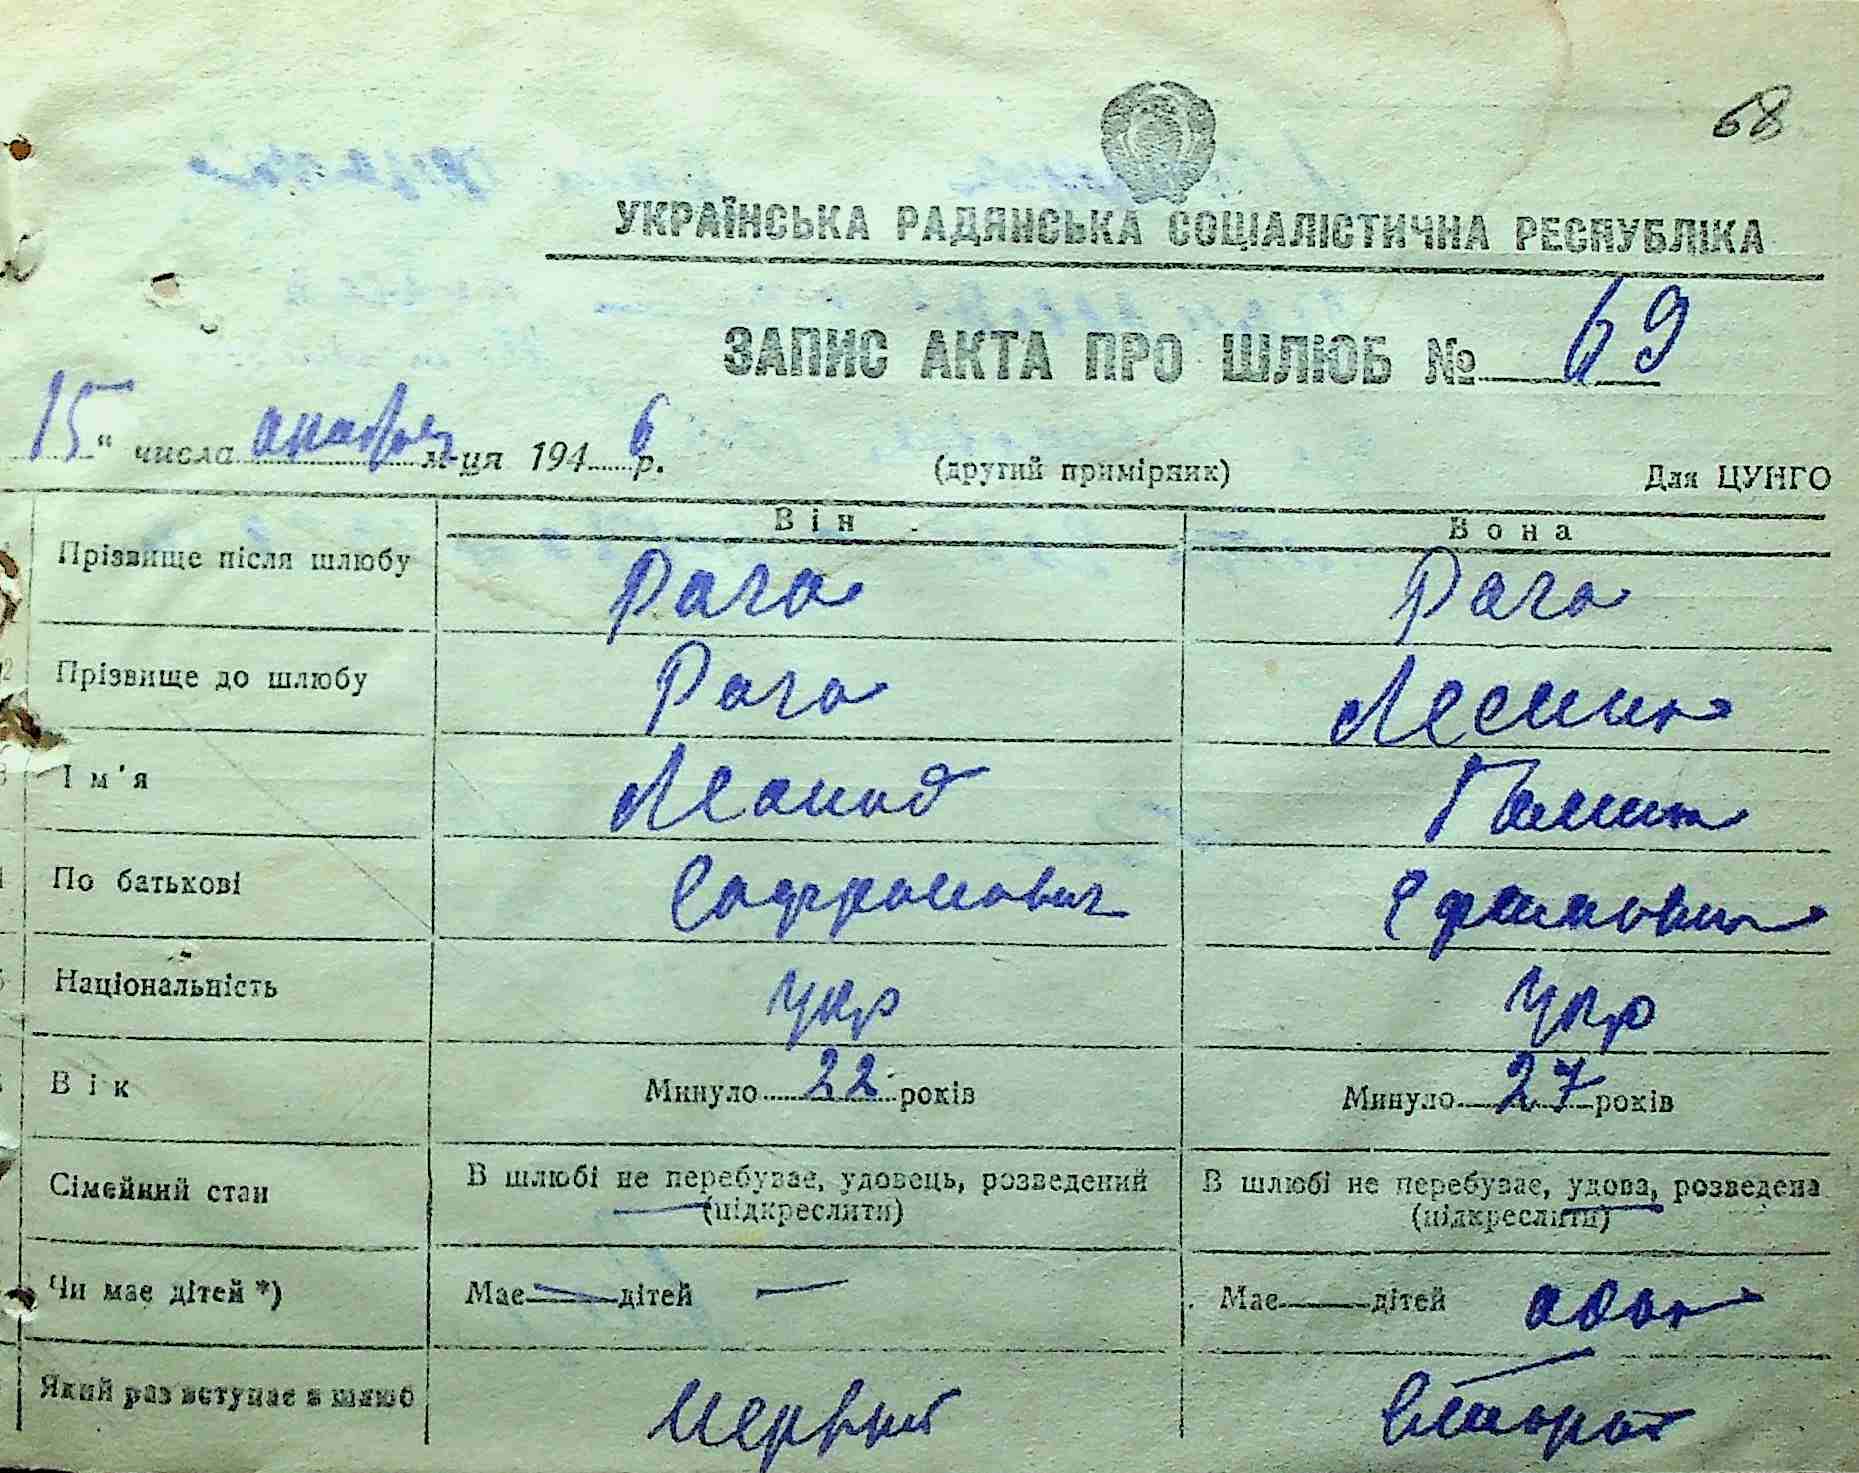 68
УКРАЇНСЬКА РАДЯНСЬКА СОЦІАЛІСТИЧНА РЕСПУБЛІКА
ЗАПИС АКТА ПРО ШЛЮБ № 69
15 " числа октября м-ця 194 6 р. (другий примірник) Для ЦУНГО
Він Вона
Прізвище після шлюбу Рага Рага
Прізвище до шлюбу Рага
Ім'я Леонид Галина
По батькові Софронович Ефимовна
Національність укр укр
Вік Минуло 22 років Минуло 27 років
Сімейний стан В шлюбі не перебуває, удовець, розведений В шлюбі не перебуває, удова, розведена
(підкреслити) (підкреслити)
Чи має дітей *) Має — дітей — Має — дітей
Який раз вступає в шлюб Первый Второй